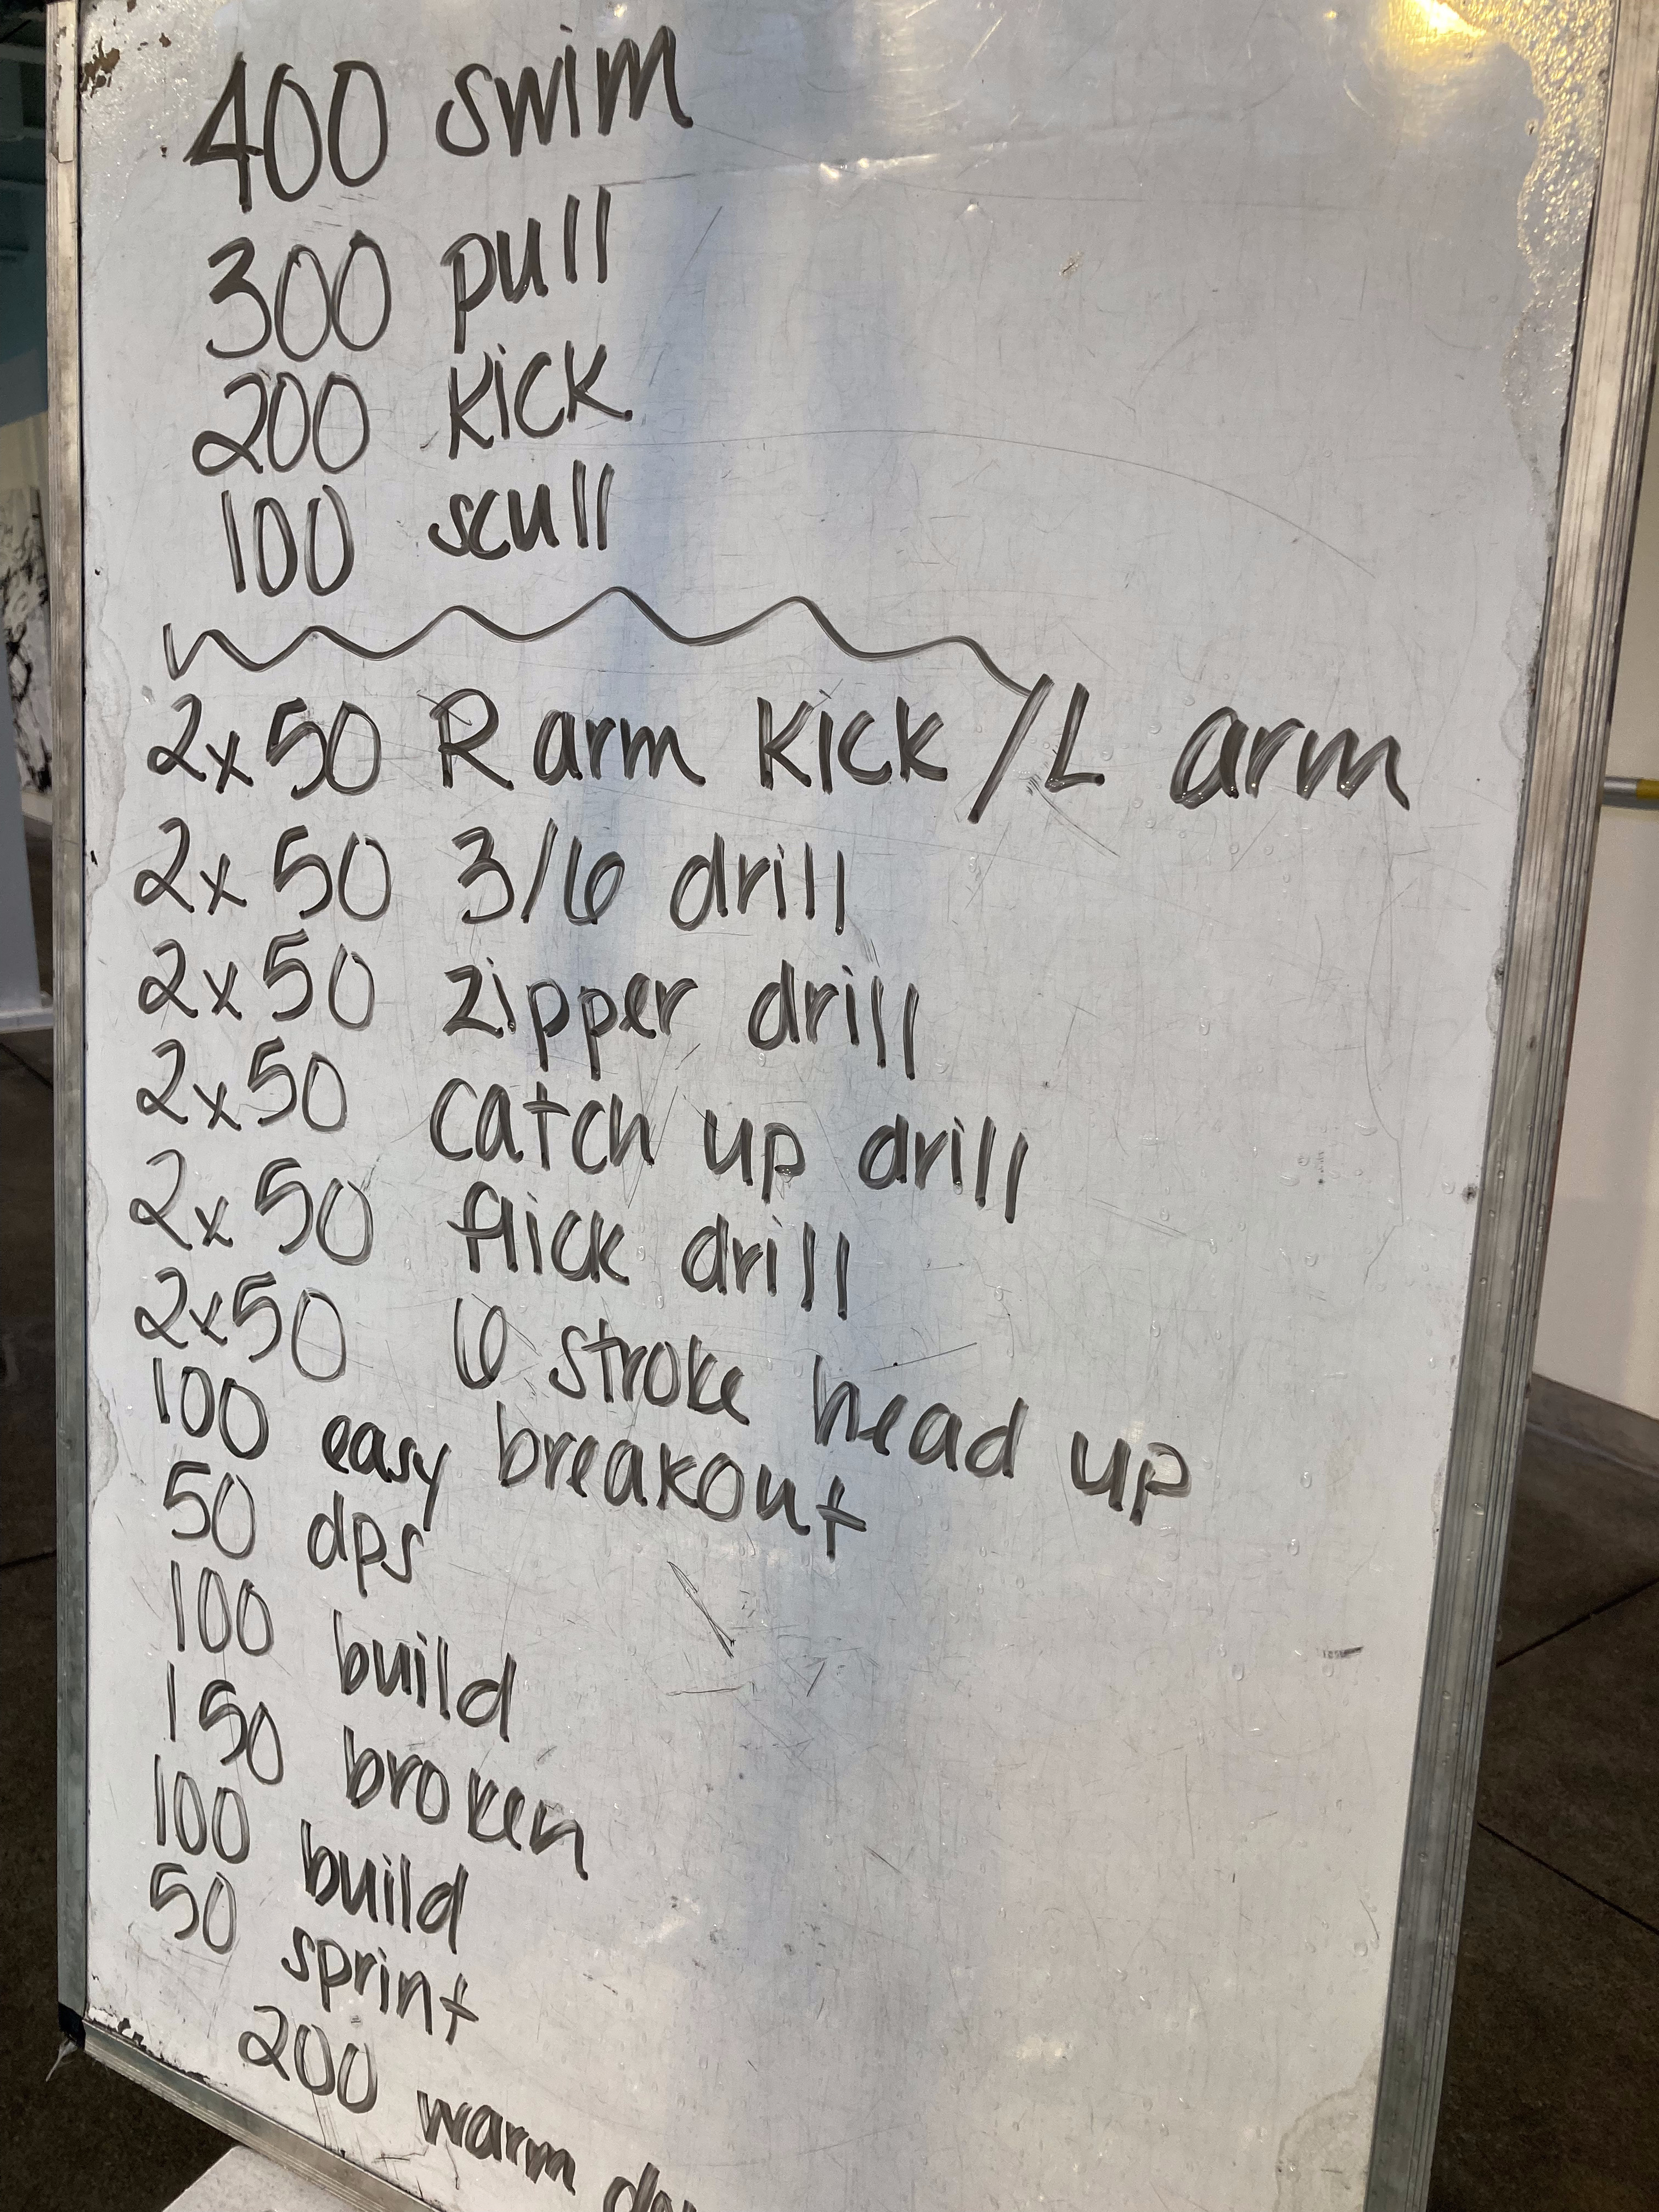 400 swim
300 pull
200 kick
100 scull
2x50 R arm kick/L arm
2x50 3/6 drill
2x50 zipper drill
2x50 catch up drill
2x50 flick drill
2x50 6 stroke head up
100 easy breakout
50 dps
100 build
150 broken
100 build
50 sprint
200 warm